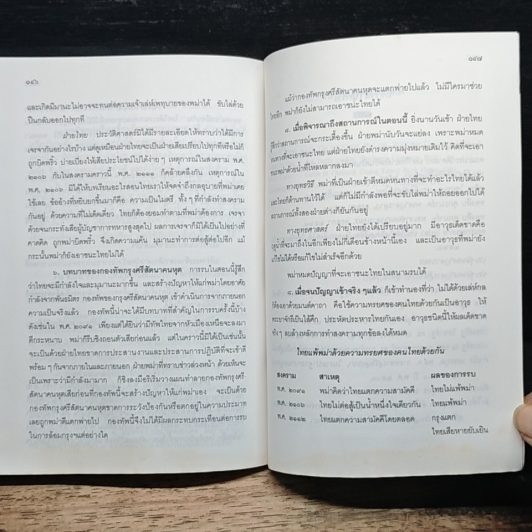 ๑๔๖
และเกิดมีมานะไม่อาจจะทนต่อความเจ้าเล่ห์เพทุบายของพม่าได้ ขับไล่ด้วย
เป็นกลับออกไปทุกที
ฝ่ายไทย ประวัติศาสตร์มิได้มีรายละเอียดให้ทราบว่าได้มีการ
เจรจากันอย่างไรบ้าง แต่ดูเหมือนฝ่ายไทยจะเป็นฝ่ายเสียเปรียบไปทุกทีหรือไม่ก็
ถูกบิดพริ้ว บ่ายเบี่ยงให้เสียประโยชน์ไปได้ง่าย ๆ เหตุการณ์ในสงคราม พ.ศ.
๒๑๐๖ กับในสงครามคราวนี้ พ.ศ. ๒๑๑๑ ก็คล้ายคลึงกัน เหตุการณ์ใน
พ.ศ. ๒๑๐๖ มิได้ให้บทเรียนอะไรสอนไทยเราให้จดจำถึงกลอุบายที่พม่าเคย
ใช้เลย ข้ออ้างที่หยิบยกขึ้นมาก็คือ ความเป็นไมตรี ทั้ง ๆ ที่กำลังทำสงคราม
กันอยู่ ด้วยความที่ไม่เด็ดเดี่ยว ไทยก็ต้องยอมทำตามที่พม่าต้องการ เจรจา
ด้วยจนกระทั่งเสียผู้บัญชาการทหารสูงสุดไป ผลการเจรจาก็มิได้เป็นไปอย่างที่
คาดคิด ถูกบิดพริ้ว จึงเกิดความแค้น มุมานะทำการต่อสู้ต่อไปอีก แม้
กระนั้นพม่าก็ยังเอาชนะไทยไม่ได้
๖. บทบาทของกองทัพกรุงศรีสัตนาคนหุต การรบในตอนนี้รู้สึก
ว่าไทยจะมีกำลังใจและมุมานะมากขึ้น และสร้างปัญหาให้แก่พม่าโดยอาศัย
กำลังจากพันธมิตร กองทัพของกรุงศรีสัตนาคนหุต เข้าดำเนินการจากภายนอก
ความเป็นจริงแล้ว กองทัพนี้น่าจะได้มีบทบาทที่สำคัญในการรบครั้งนี้บ้าง
ดังเช่นใน พ.ศ. ๒๐๙๑ เพียงแต่ได้ยินว่ามีทัพไทยจากหัวเมืองเหนือจะลงมา
ตีกระหนาบ พม่าก็รีบชิงถอนตัวเสียก่อนแล้ว แต่ในคราวนี้มิได้เป็นเช่นนั้น
จะเป็นด้วยฝ่ายไทยขาดการประสานงานและประสานการปฏิบัติที่จะเข้าตี
พร้อมๆ กันจากภายในและภายนอก ฝ่ายพม่าที่ทราบข่าวล่วงหน้า ด้วยเห็นจะ
เป็นเพราะว่ามีกำลังมาก ก็ชิงลงมือริเริ่มวางแผนทำลายกองทัพกรุงศรี
สัตนาคนหุตเสียก่อนที่กองทัพนี้จะสร้างปัญหาให้แก่พม่าเอง จะเป็นด้วย
กองทัพกรุงศรีสัตนาคนหุตขาดการระวังป้องกันหรือตกอยู่ในความประมาท
เลยถูกพม่าตีแตกพ่ายไป กองทัพนี้จึงไม่ได้มีผลกระทบกระเทือนต่อการรบ
ในการล้อมกรุงฯแต่อย่างใด
๑๔๗
แม้ว่ากองทัพกรุงศรีสัตนาคนหุตจะแตกพ่ายไปแล้ว ไม่มีใครมาช่วย
ไทยอีก พม่าก็ยังไม่สามารถเอาชนะไทยได้
๘. เมื่อพิจารณาถึงสถานการณ์ในตอนนี้ ยิ่งนานวันเข้า ฝ่ายไทย
สถานการณ์จะกระเตื้องขึ้น ฝ่ายพม่านับวันจะแย่ลง เพราะพม่าหมด
หนทางที่จะเอาชนะไทย แต่ฝ่ายไทยยังดำรงความมุ่งหมายเดิมไว้ คิดที่จะเอา
ชนะพม่าด้วยน้ำที่ไหลหลากลงมา
ทางยุทธวิธี พม่าที่เป็นฝ่ายเข้าตีหมดหนทางที่จะทำอะไรไทยได้แล้ว
และไทยก็ต้านทานไว้ได้ แต่ก็ไม่มีกำลังพอที่จะขับไล่พม่าให้ถอยออกไปได้
สถานการณ์ทั้งสองฝ่ายต่างก็ยันกันอยู่
ทางยุทธศาสตร์ ฝ่ายไทยยังได้เปรียบอยู่มาก มีอาวุธเด็ดขาดคือ
ฤดูน้ำที่จะมาถึงในอีกเพียงไม่กี่เดือนข้างหน้านี้เอง และเป็นอาวุธที่พม่ายัง
แก้ไม่ได้หรือแก้ไขไม่สำเร็จอีกด้วย
พม่าหมดปัญญาที่จะเอาชนะไทยในสนามรบได้
๘. เมื่อจนปัญญาเข้าจริง ๆ แล้ว ก็เข้าทำนองที่ว่า ไม่ได้ด้วยเล่ห์กล
ก็ต้องเอาด้วยมนต์คาถา คือใช้ความทรยศของคนไทยด้วยกันเป็นอาวุธ ให้
พระยาจักรีเป็นไส้ศึก ประหัตประหารไทยกันเอง อาวุธชนิดนี้ให้ผลเด็ดขาด
จริงๆ จบลงหลักการทำสงครามทุกข้อลงได้หมด
ไทยแพ้พม่าด้วยความทรยศของคนไทยด้วยกัน
สงคราม สาเหตุ ผลของการรบ
พ.ศ. ๒๐๙๑ พม่าคิดว่าไทยแตกความสามัคคี ไทยไม่แพ้พม่า
พ.ศ. ๒๑๐๖ ไทยไม่ต่อสู้เป็นน้ำหนึ่งใจเดียวกัน ไทยแพ้พม่า
พ.ศ. ๒๑๑๒ ไทยแตกความสามัคคีโดยตลอด กรุงแตก
ไทยเสียหายยับเยิน